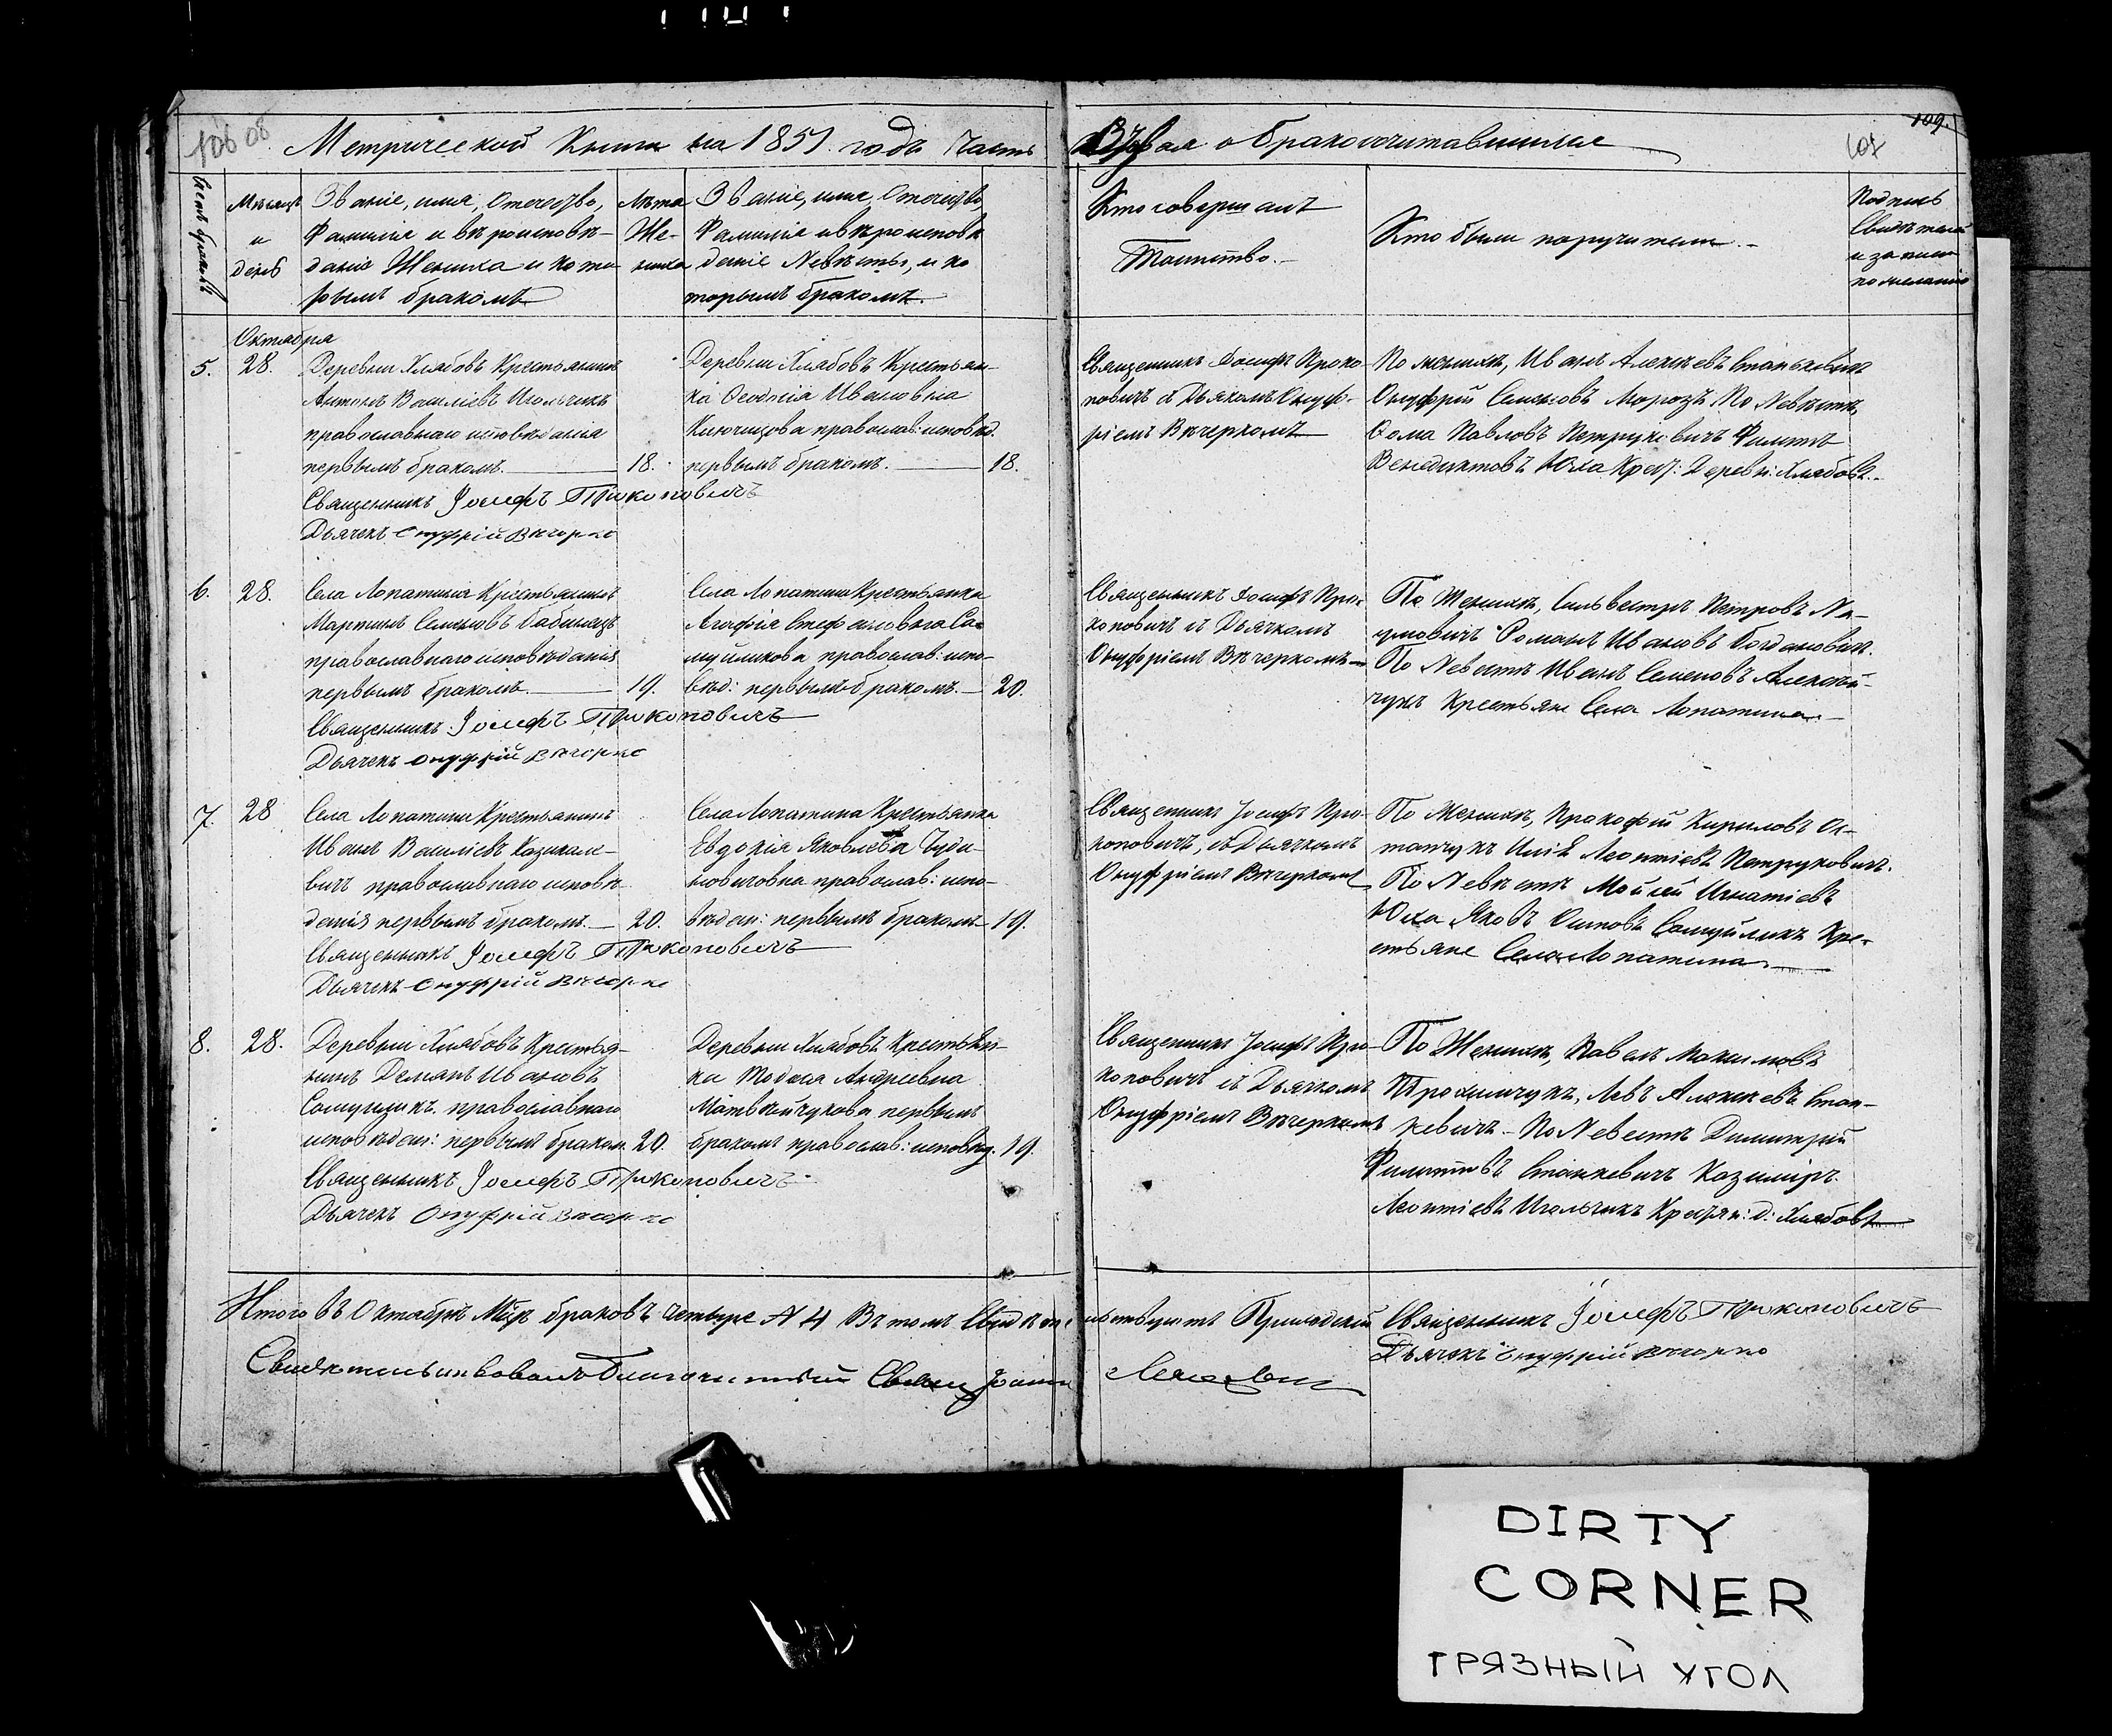 109.
107
Метрической Книги на 1857 годъ Часть Вторая о бракосочитавшихся
Счетъ браковъ
Мѣсяцъ
и
день
Званіе, имя, Отчество,
Фамилія и вѣроисповѣ-
даніе Жениха и кото
рымъ бракомъ
Лѣта
Же-
ниха
Званіе, имя, Отчество,
Фамилія и вѣроисповѣ
даніе Невѣсты, и ко
торымъ бракомъ.
Кто совершалъ
Таинство.
Кто были поручители.
Подпись
Свидѣтелей
по желанію
Октября
5.
28.
Деревни Хлябовъ Крестьянинъ
Антонъ Василіевъ Игольчикъ
православнаго исповѣданія
первымъ бракомъ.
18.
Священникъ Іосифъ Прокоповичъ
Дьячекъ Онуфрій Вечорко
Деревни Хлябовъ Крестьян-
ка Ѳеодосія Ивановна
православ: исповѣд.
первымъ бракомъ.
18.
Священникъ Іосифъ Проко-
повичъ съ Дьячкомъ Онуф-
ріемъ Вечеркомъ
По женихѣ, Иванъ Алексѣевъ Станкевичъ
Онуфрій Семеновъ Морозъ По Невѣстѣ,
Ѳома Павловъ Петруковичъ Филиппъ
Венедиктовъ Юха Крест: Деревни: Хлябовъ.
6.
28.
Села Лопатина Крестьянинъ
Мартинъ Семеновъ Бабинецъ
православнаго исповѣданія
первымъ бракомъ.
19.
Священникъ Іосифъ Прокоповичъ
Дьячекъ Онуфрій Вечорко
Села Лопатина Крестьянка
Агафія Стефановна Са-
муйликова православ: испо-
вѣд: первымъ бракомъ.
20.
Священникъ Іосифъ Про-
коповичъ съ Дьячкомъ
Онуфріемъ Вечеркомъ
По Женихѣ, Сильвестръ Петровъ На-
умовичъ Романъ Ивановъ Богдановичъ.
По Невѣстѣ Иванъ Семеновъ Алексѣй-
чукъ Крестьяне Села Лопатина.
7.
28
Села Лопатина Крестьянинъ
Иванъ Василіевъ Казимѣ-
вичъ православнаго исповѣ
данія первымъ бракомъ.
20.
Священникъ Іосифъ Прокоповичъ
Дьячекъ Онуфрій Вечорко
Села Лопатина Крестьянка
Евдокія Яковлева Чуди-
новичовна православ: испо-
вѣдан: первымъ бракомъ
19.
Священникъ Іосифъ Про-
коповичъ, съ Дьячкомъ
Онуфріемъ Вечеркомъ
По Женихѣ, Прокофій Кириловъ Ос-
тапчукъ Илія Леонтіевъ Петруковичъ.
По Невѣстѣ Мойсей Игнатіевъ
Юха Яковъ Осиповъ Самуйликъ Кре-
стьяне Села Лопатина
8.
28.
Деревни Хлябовъ Крестья-
нинъ Демянъ Ивановъ
православнаго
исповѣдан: первымъ браком.
20.
Священникъ Іосифъ Прокоповичъ
Дьячекъ Онуфрій Вечорко
Деревни Хлябовъ Крестьян-
ка Андреевна
Матвѣйчукова первымъ
бракомъ православ: исповѣд.
19.
Священникъ Іосифъ Про-
коповичъ съ Дьячкомъ
Онуфріемъ Вечеркомъ
По Женихѣ, Павелъ Максимовъ
Трохимчукъ, Левъ Алексѣевъ Стан-
кевичъ - По Невѣстѣ Димитрій
Филипповъ Станкевичъ Казиміръ
Леонтіевъ Игольчикъ Крестьян: д: Хлябовъ
Итого въ Октябрѣ М-цѣ браковъ четыре № 4 Въ томъ Свидѣтельствуютъ Приходскій Священникъ Іосифъ Прокоповичъ
Дьячекъ Онуфрій Вечорко
Свидѣтельствовалъ Благочинный Свящ Іоаннъ
DIRTY
CORNER
ГРЯЗНЫЙ УГОЛ